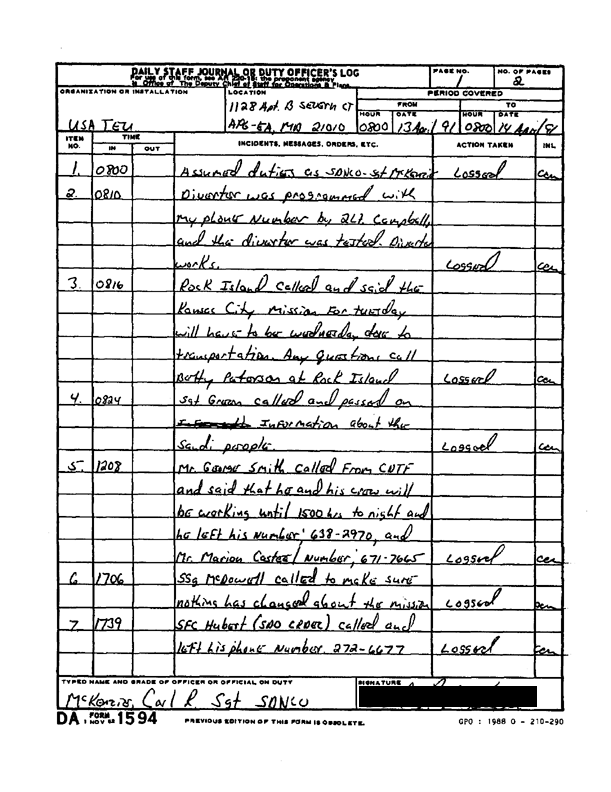 DAILY STAFF JOURNAL OR DUTY OFFICER'S LOG
For use of this form, see AR 220-15; the proponent agency
is Office of The Deputy Chief of Staff for Operations & Plans.
PAGE NO. 1
NO. OF PAGES 2
ORGANIZATION OR INSTALLATION
USA TEU
LOCATION
1128 Apt. B SEVERN CT
APG-EA, MD 21010
PERIOD COVERED
FROM TO
HOUR DATE HOUR DATE
0800 13 Apr/91 0800 14 Apr/91
ITEM NO. TIME IN OUT INCIDENTS, MESSAGES, ORDERS, ETC. ACTION TAKEN INL
1. 0800 Assumed duties as SDNCO-Sgt McKenzie Logged
2. 0810 Divertor was programmed with
my phone Number by 2Lt. Campbell,
and the divertor was tested. Divertor
works. Logged
3. 0816 Rock Island called and said the
Kansas City Mission For tuesday
will have to be wednesday due to
transportation. Any Questions call
Betty Paterson at Rock Island Logged
4. 0824 Sgt Green called and passed on
InFormation about the
Saudi people. Logged
5. 1208 Mr. George Smith called From CDTF
and said that he and his crew will
be working until 1500 hrs to night and
he left his Number, 638-2970, and
Mr. Marion Number, 671-7665 Logged
6. 1706 SSg McDowell called to make sure
nothing has changed about the mission Logged
7. 1739 SFC Hubert (SDO CRDEC) called and
left his phone Number. 272-6677 Logged
TYPED NAME AND GRADE OF OFFICER OR OFFICIAL ON DUTY
McKenzie, Carl R. Sgt SDNCO
SIGNATURE
DA FORM 1 NOV 62 1594
PREVIOUS EDITION OF THIS FORM IS OBSOLETE.
GPO : 1988 O - 210-290